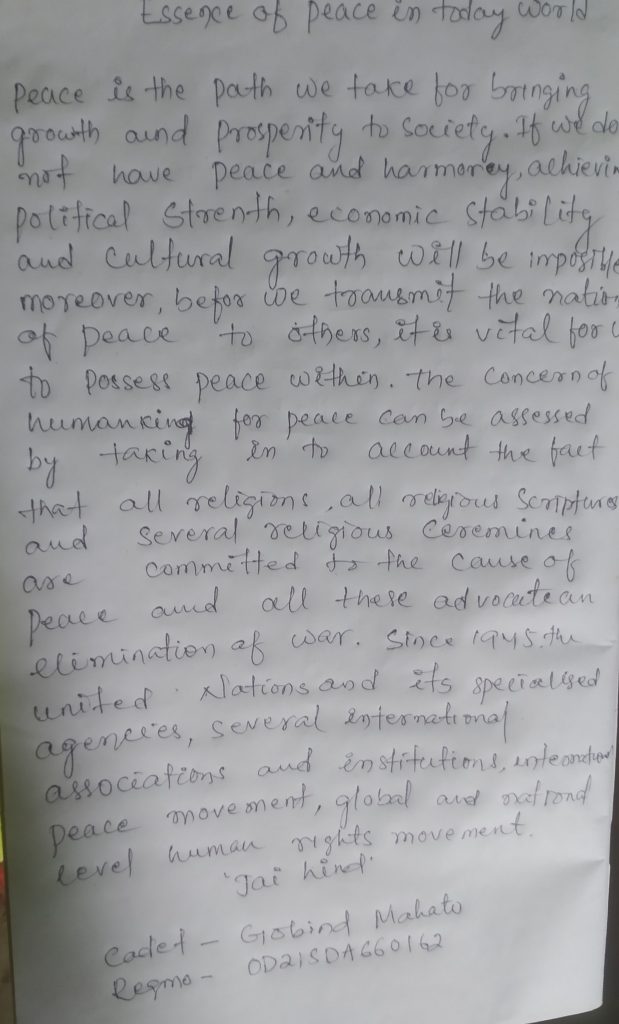 Essence of peace in today world
Peace is the path we take for bringing
growth and prosperity to society. If we do
not have peace and harmoney, achievin
political Strenth, economic stability
and cultural growth will be imposible
moreover, befor we transmit the nation
of peace to others, it is vital for u
to possess peace within. The concern of
humanking for peace can be assessed
by taking in to account the fact
that all religions, all religious scriptures
and several religious ceremines
are committed to the cause of
peace and all these advocate an
elimination of war. Since 1945. the
united Nations and its specialised
agencies, several international
associations and institutions, international
peace movement, global and national
level human rights movement.
'Jai hind'
Cadet - Gobind Mahato
Regmo - OD21SDA660162